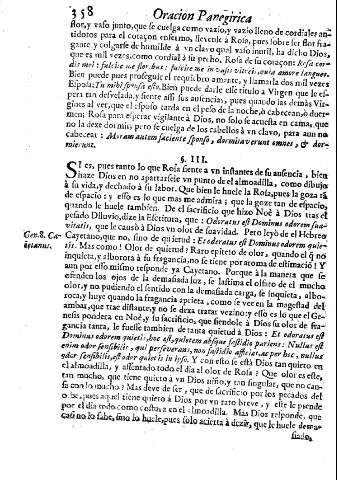 358 Oracion Panegirica
flor, y vaso junto, que se cuelga como vazio, y vazio lleno de cordiales an-
tidotos para el coraçon enfermo, llevenle à Rosa, pues sobre ser flor fra-
gante y colgarse de humilde à vn clavo qual vaso inutil, ha dicho Dios,
que es mil vezes, como cordial à su pecho. Rosa de su coraçon: Rosa cor-
dis mei: fulcite me floribus: fulcite me in vasis vitreis, quia amore langueo.
Bien puede pues proseguir el requibro amante, y llamarla dos mil vezes
Esposa: Tu mihi sponsa esto. Bien puede darle esse titulo a Virgen que le es-
pera tan desvelada, y siente assi sus ausencias, pues quando las demàs Vir-
gines al ver, que el esposo tarda en el peso de la noche, ò cabecean, ò duer-
men; Rosa para esperar vigilante à Dios, no solo se acuesta en camas, que
no la dexe dormir, pero se cuelga de los cabellos à vn clavo, para aun no
cabecear: Moram autem faciente sponso, dormitaverunt omnes, & dor-
mierunt.
§. III.
SI es, pues tanto lo que Rosa siente a vn instantes de su ausencia, bien
haze Dios en no apartarsele vn punto de la almoadilla, como dibujo
à su vida, y dechado à su labor. Que bien le huele la Rosa, pues la goza tã
de espacio: y esso es lo que mas me admira; que la goze tan de espacio,
quando le huele tambien. De el sacrificio que hizo Noè à Dios tras el
pesado Diluvio, dize la Escritura, que: Odoratus est Dominus odorem sua-
vitatis, que le causò à Dios vn olor de suavidad. Pero leyò de el Hebreo
Gen. 8. Ca- Cayetano, que no, sino de quietud: Et odoratus est Dominus odorem quie-
ietanus. tis. Mas como! Olor de quietud! Raro epiteto de olor, quando el q̃ no
inquieta, y alborota à su fragancia, no se tiene por aroma de estimaciõ! Y
aun por esso mismo responde ya Cayetano. Porque à la manera que se
ofenden los ojos de la demasiada luz, se lastima el olfato de el mucho
olor, y no pudiendo el sentido con la demasiada carga, se inquieta, albo-
rota, y huye quando la fragancia aprieta, como se vee en la magestad del
ambar, que trae distante, y no se dexa tratar vezino: y esso es lo que el Ge-
nesis pondera en Noè, y su sacrificio, que siendole à Dios su olor de fra-
grancia tanta, le fuesse tambien de tanta quietud à Dios: Et odoratus est
Dominus odorem quietis: hoc est, quietem absque fastidio pariens: Nullus est
enim odor sensibilis, qui perseverans, non fastidio afficiat. ac per hoc, nullus
odor sensibilis, est odor quietis in ipso. Y con esso se està Dios tan quieto en
el almoadilla, y assentado todo el dia al olor de Rosa? Que olor es este,
tan mucho, que tiene quieto à vn Dios niño, y tan singular, que no can-
sa con lo mucho? Mas deve de ser, que de sacrificio por los pecados del
orbe, pues aquel tiene quieto à Dios por vn rato breve, y este le prende
por el dia todo como costura en el almoadilla. Mas Dios responde, que
casi no lo sabe, sino lo huele, pues solo acierta à dezir, que le huele dema-
siado,